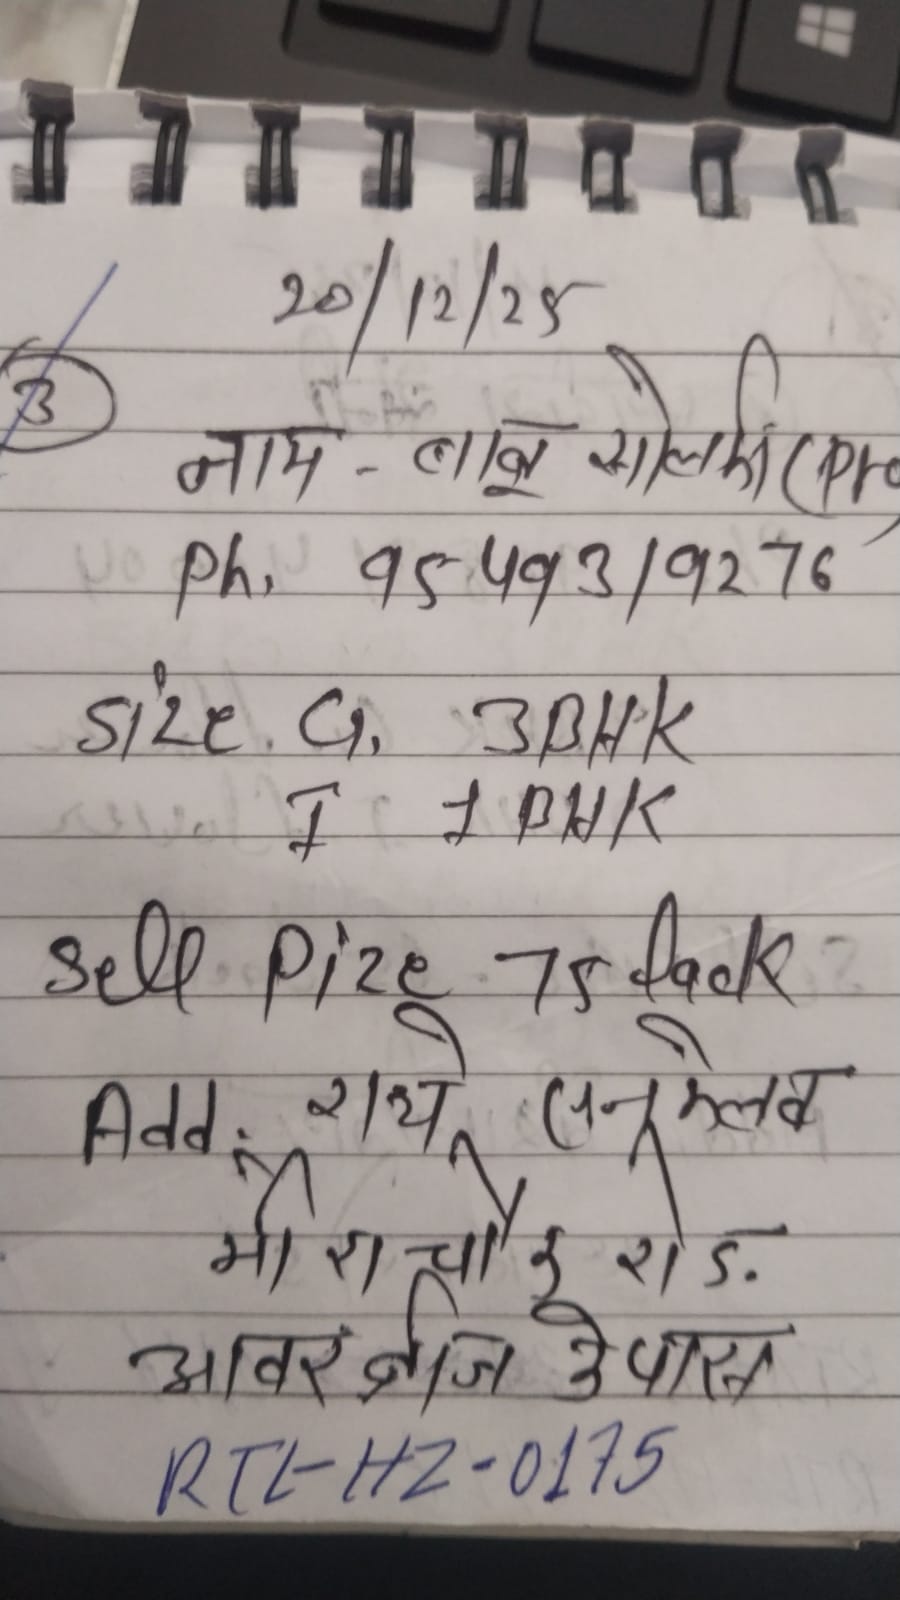 20/12/25
3
नाम - बाबू सोलकी (Pro
Ph. 9549319276
Size. G. 3BHK
I 1BHK
Sell Pize 75 lack
Add. राधे
मीरा चोई रोड.
आवर ब्रीज के पास
RTL-HZ-0175